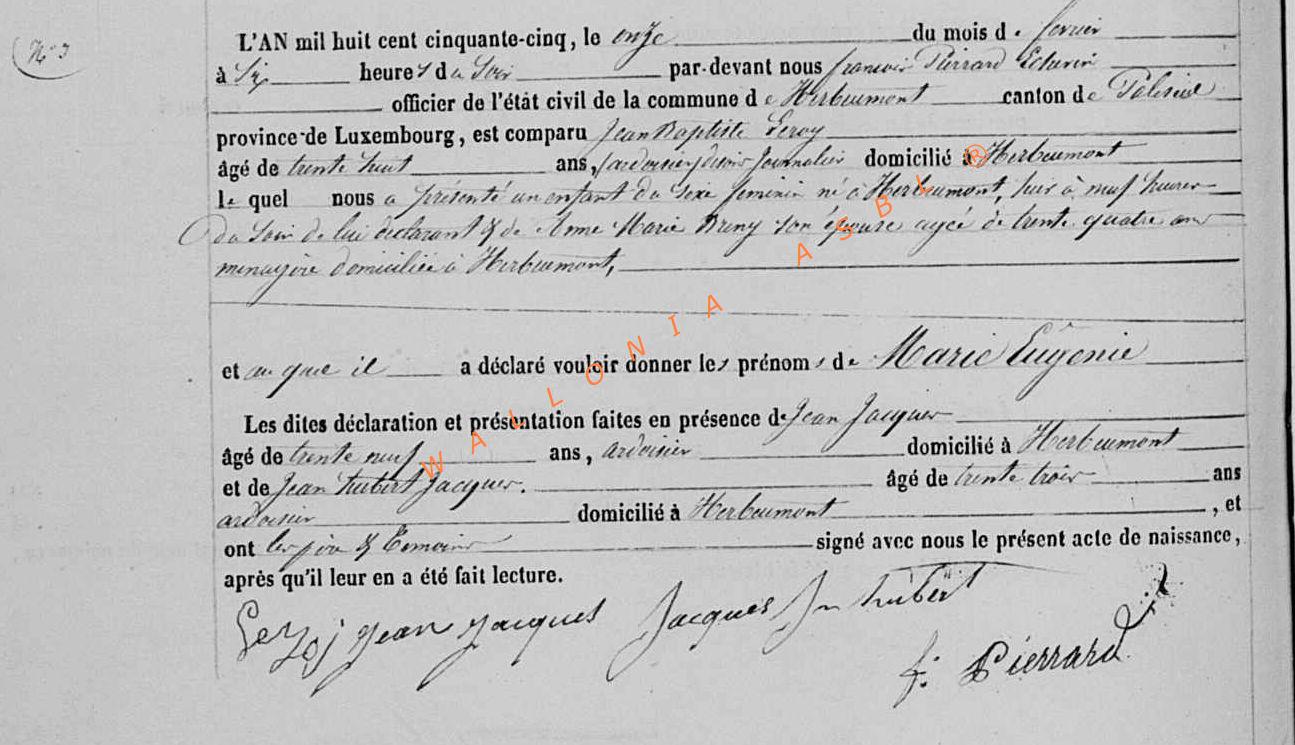 N° 3
L'AN mil huit cent cinquante-cinq, le onze du mois de fevrier
à Six heures du Soir par-devant nous francois Pierrard Echevin
officier de l'état civil de la commune de Herbeumont canton de Paliseul
province de Luxembourg, est comparu Jean Baptiste Leroy
âgé de trente huit ans, Journalier domicilié à Herbeumont
le quel nous a présenté un enfant du sexe feminin né à Herbeumont, hier à neuf heures
du Soir de lui déclarant & de Anne Marie son épouse agée de trente quatre ans
menagère domiciliée à Herbeumont,
et au quel il a déclaré vouloir donner les prénoms de Marie Eugénie
Les dites déclaration et présentation faites en présence de Jean Jacques
âgé de trente neuf ans, ardoisier domicilié à Herbeumont
et de Jean hubert Jacques. âgé de trente trois ans
ardoisier domicilié à Herbeumont, et
ont les père & temoins signé avec nous le présent acte de naissance,
après qu'il leur en a été fait lecture.
Leroy j jean jacques Jacques Jn hubert
f: Pierrard
WALLONIA ASBL ®